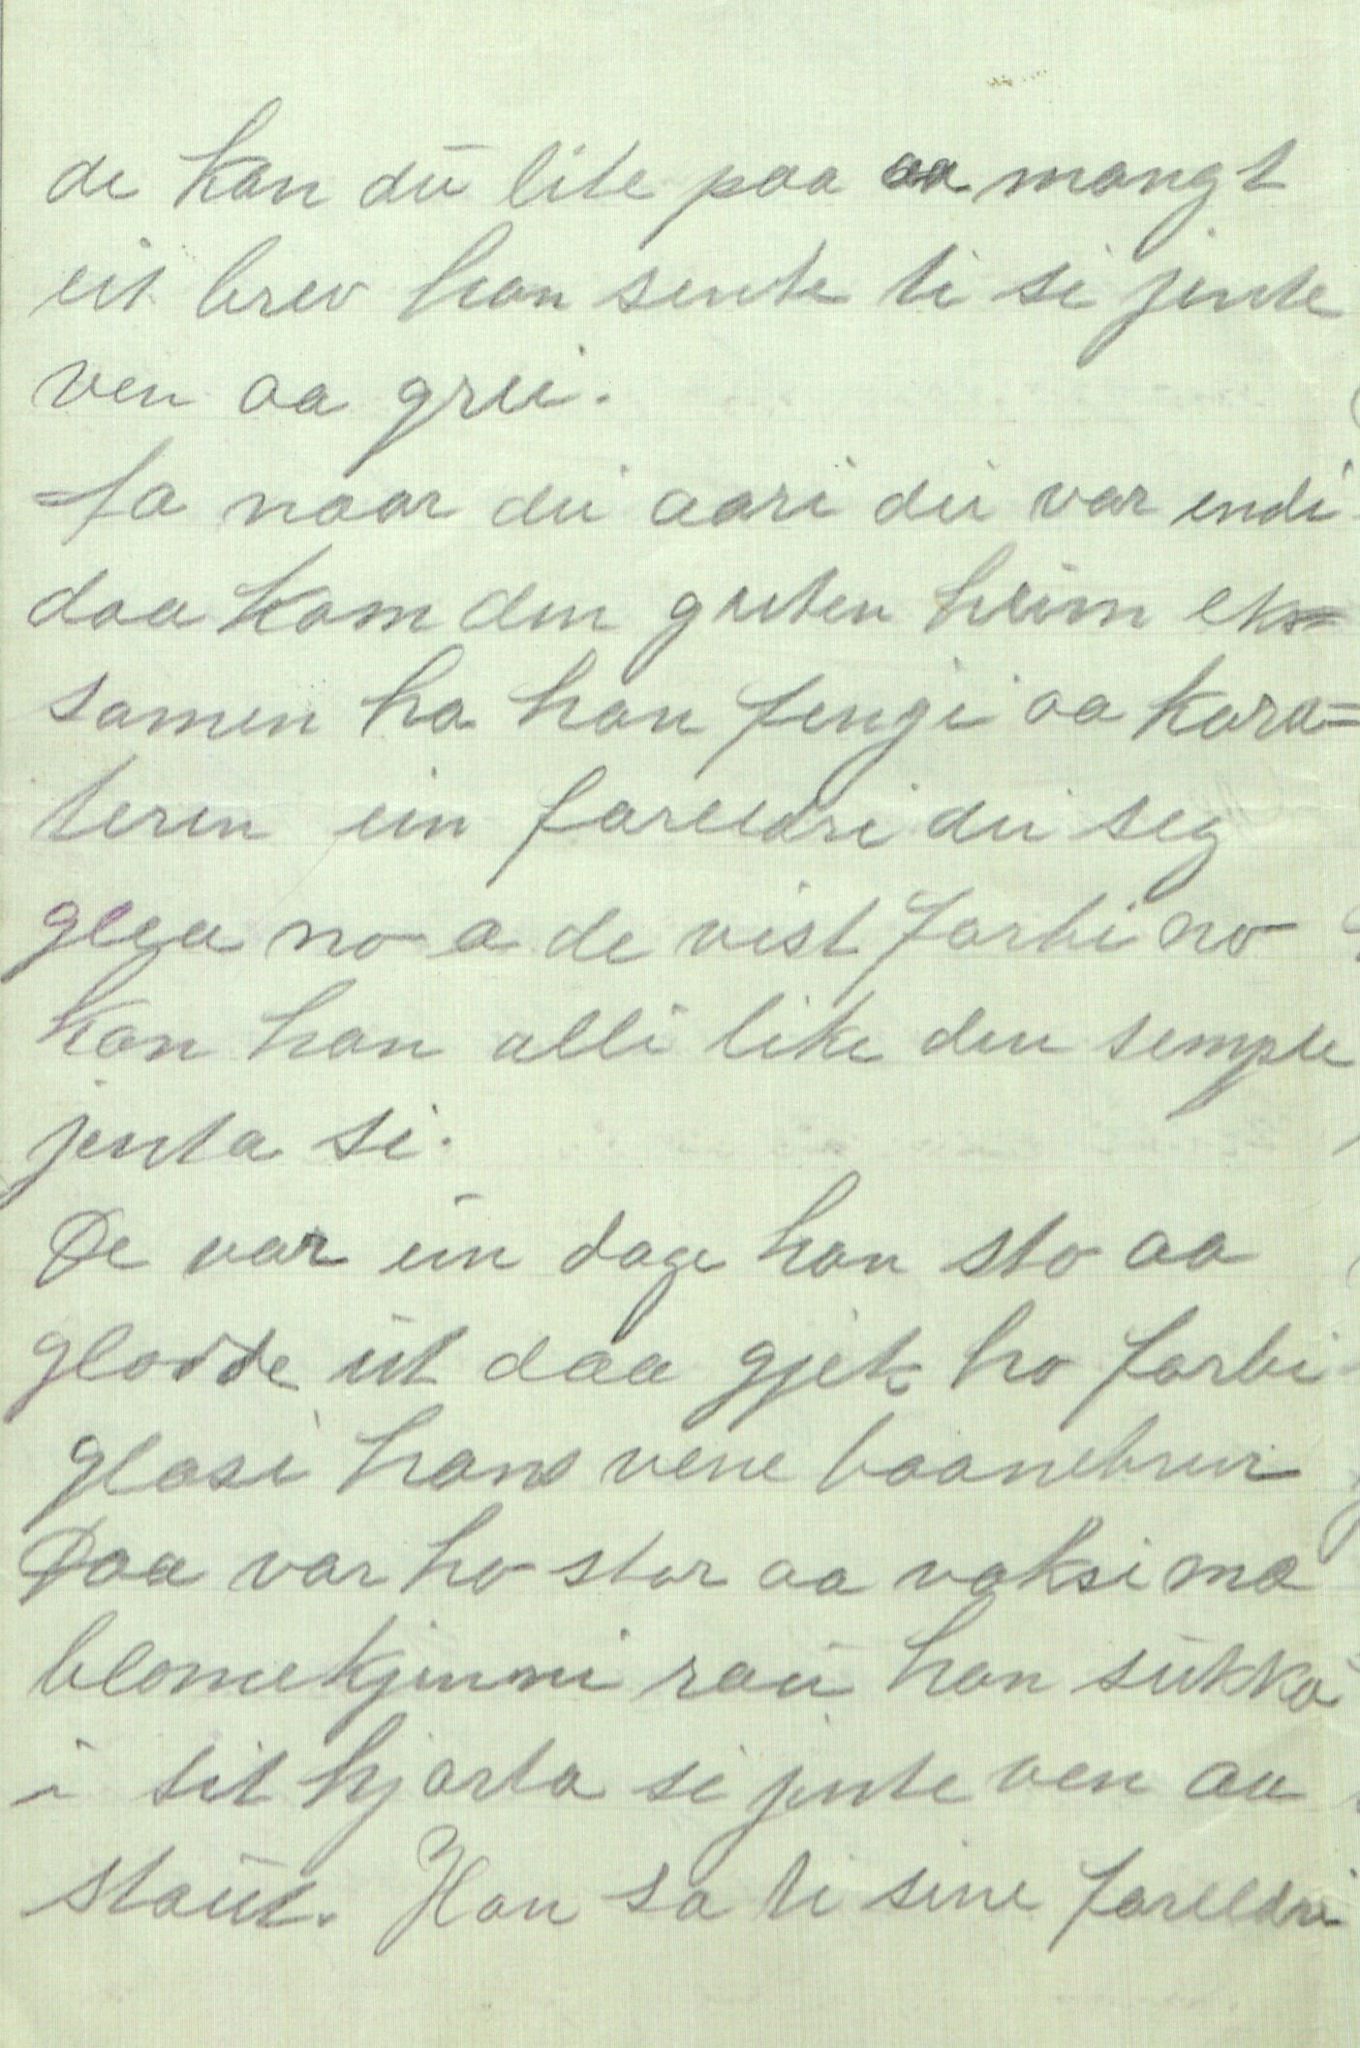 de kan dū lite paa aa mangt
eit brev han sente ti si jente
ven aa grei.
Ja naar dei aari dei var endi
daa kom den guten heim eks=
samen ha han fengi aa kara=
teren ein foreldri dei seg
glea no a de vist forbi no
kan han alli like den semple
jenta si.
De var ein dage han sto aa
glodde ūt daa gjek ho forbi
glasi hans vene baanebrur
Daa var ho stor aa vaksi mæ
blomekjinni raū han sūkka
i sit hjarta si jente ven aa
staūt. Han sa ti sine foreldri